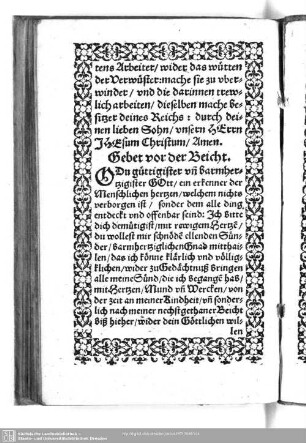 tens Arbeiter/ wider das wütten
der Verwüster: mache sie zu vber-
winder/ vnd die darinnen trew-
lich arbeiten/ dieselben mache be-
sitzer deines Reichs: durch dei-
nen lieben Sohn/ vnsern HErrn
JHEsum Christum/ Amen.
Gebet vor der Beicht.
O Du güttigister vñ barmher-
tzigister GOtt/ ein erkenner der
Menschlichen hertzen/ welchem nichts
verborgen ist/ sonder dem alle ding
entdeckt vnd offenbar seind: Ich bitte
dich demütigist/ mit rewigem Hertzẽ/
du wollest mir schnöde ellenden Sün-
der/ barmhertziglichen Gnad mitthai-
len/ das ich könne klärlich vnd völlig-
klichen/ wider zu Gedächtnuß bringen
alle meine Sünd/ die ich begangẽ hab/
mit Hertzen/ Mund vñ Wercken/ von
der zeit an meiner Kindheit/ vñ sonder-
lich nach meiner nechstgethaner Beicht
biß hieher/ wider dein Göttlichen wil-
len